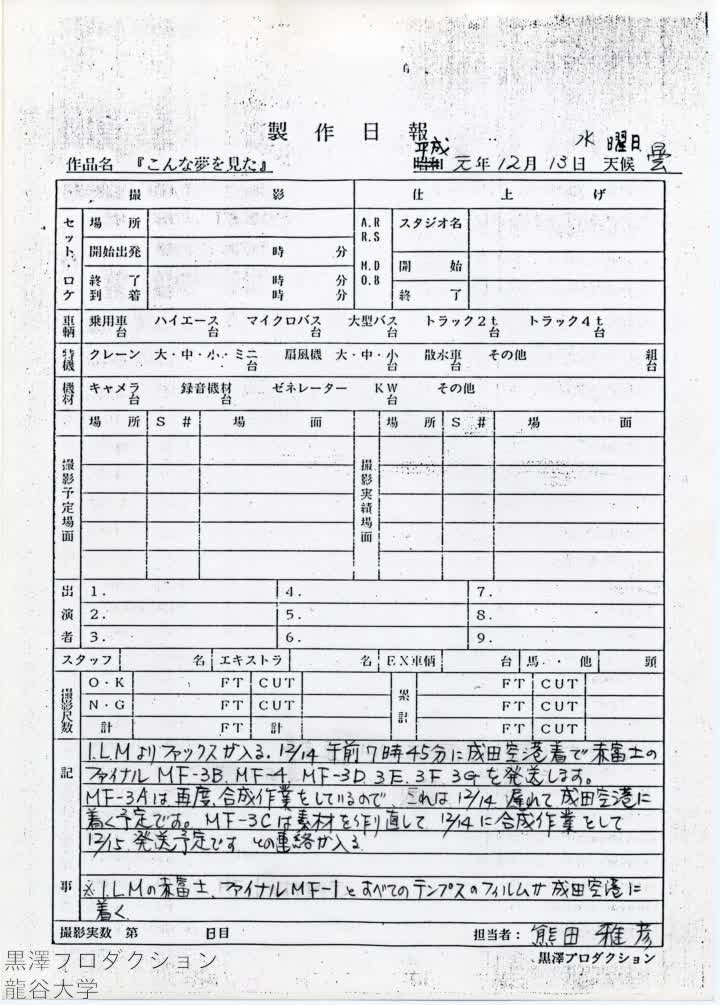 製作日報
作品名 『こんな夢を見た』 平成 元年 12月 13日 水曜日 天候 曇
撮影 仕上げ
セット・ロケ 場所 A.R R.S スタジオ名
開始出発 時 分
M.D O.B 開始
終了 時 分
到着 時 分 終了
車輌 乗用車 台 ハイエース 台 マイクロバス 台 大型バス 台 トラック2t 台 トラック4t 台
特機 クレーン 大・中・小・ミニ 台 扇風機 大・中・小 台 散水車 台 その他 組 台
機材 キャメラ 台 録音機材 台 ゼネレーター KW 台 その他
場所 S# 場面 場所 S# 場面
撮影予定場面 撮影実績場面
出演者 1. 4. 7.
2. 5. 8.
3. 6. 9.
スタッフ 名 エキストラ 名 EX車輌 台 馬・他 頭
撮影尺数 O・K FT CUT 累計 FT CUT
N・G FT CUT FT CUT
計 FT 計 FT CUT
記事
I.L.Mよりファックスが入る。12/14 午前7時45分に成田空港着で赤富士の
ファイナル MF-3B, MF-4, MF-3D, 3E, 3F, 3Gを発送します。
MF-3Aは、再度、合成作業をしているので これは、12/14 遅れて成田空港に
着く予定です。MF-3Cは素材を作り直して 12/14に合成作業をして
12/15 発送予定です との連絡が入る
※I.L.Mの赤富士、ファイナルMF-1とすべてのテンプスのフィルムが成田空港に
着く。
撮影実数 第 日目 担当者: 熊田雅彦
黒澤プロダクション
黒澤プロダクション
龍谷大学